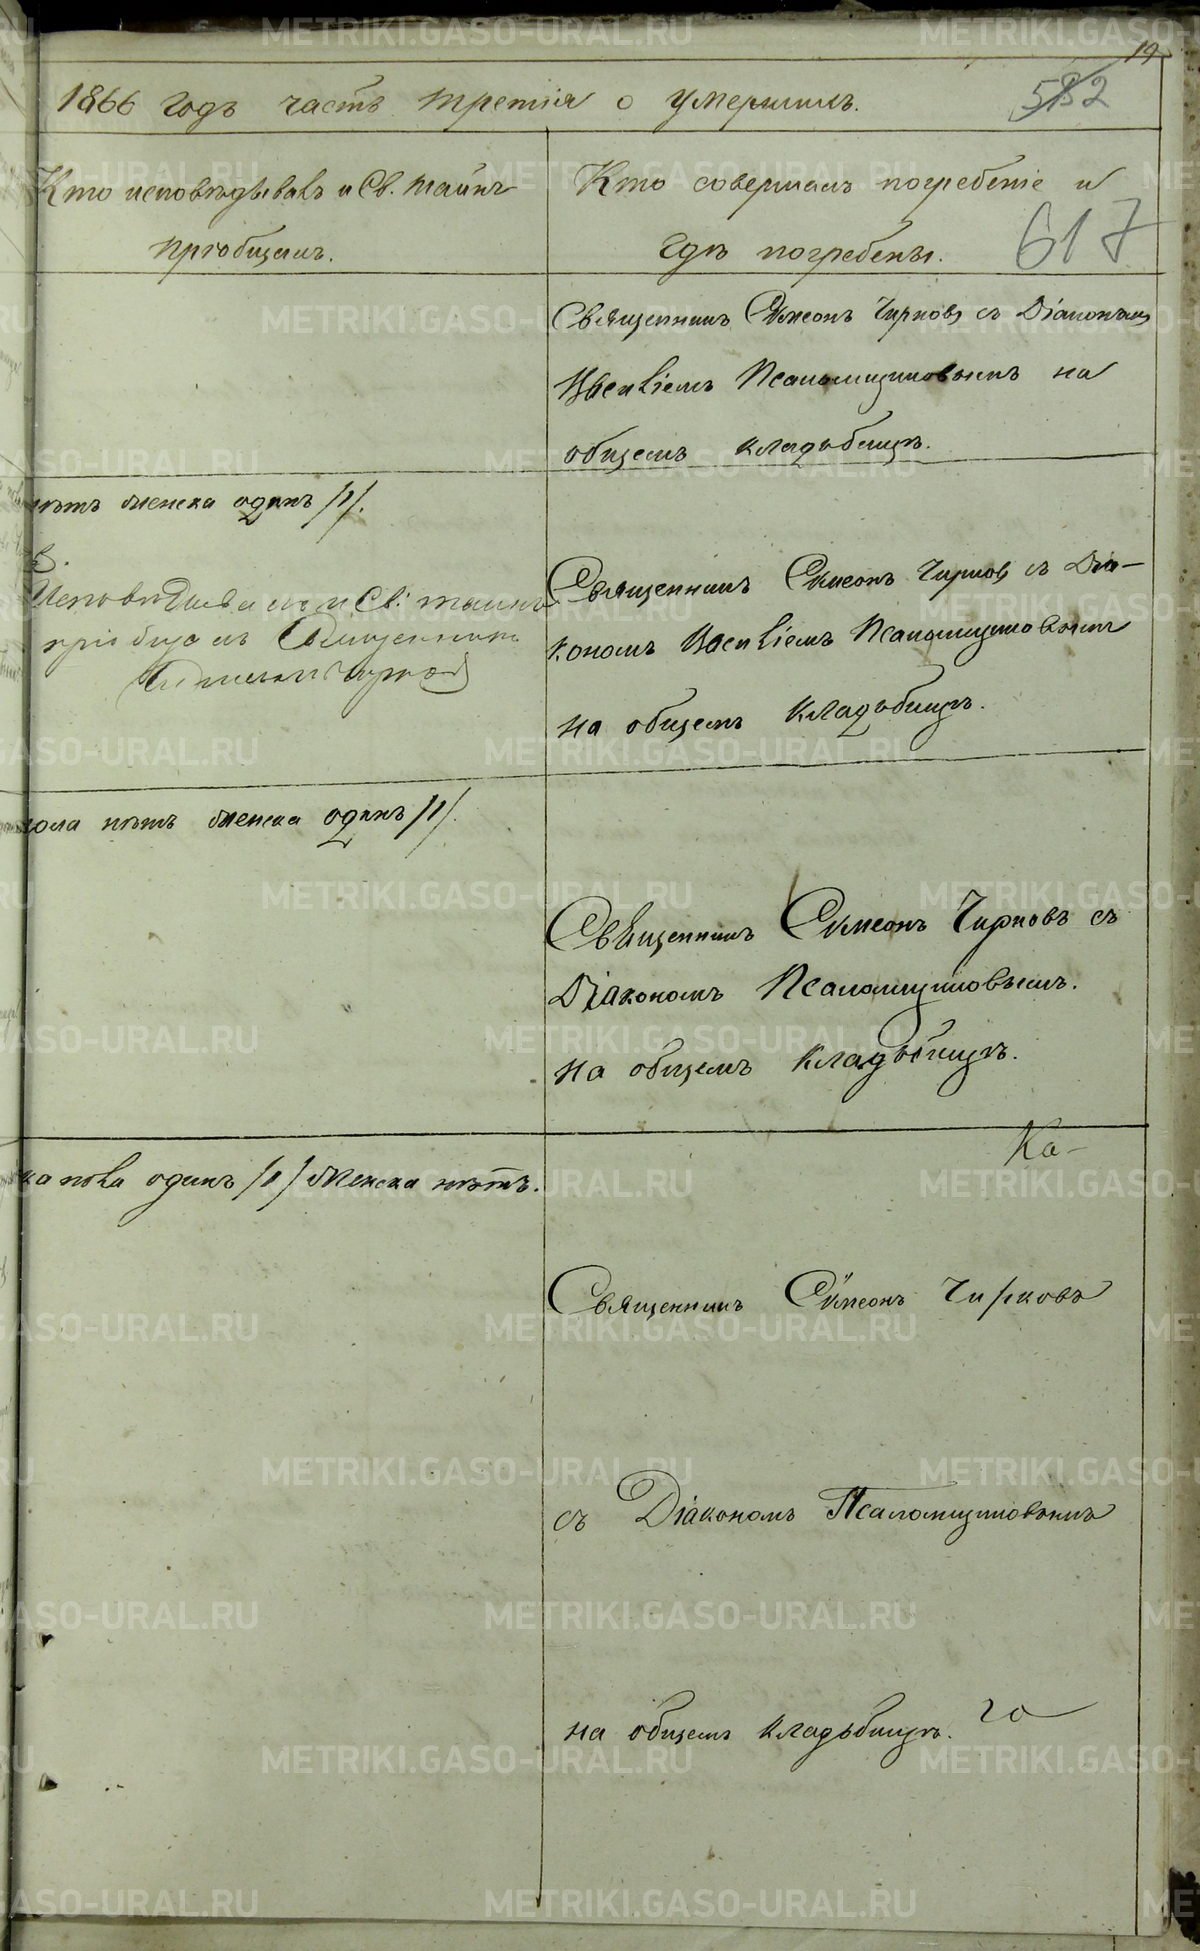 19
1866 годъ часть третія о умершихъ.
582
Кто исповѣдывалъ и Св. тайнъ
пріобщалъ.
Кто совершалъ погребеніе и
гдѣ погребены.
617
Священникъ Симеонъ Чирковъ съ Діакономъ
Василіемъ Псаломщиковымъ на
общемъ кладьбищѣ.
нѣтъ женска одинъ /1/.
Исповѣдывалъ и Св: таинъ
пріобщалъ Священникъ
Симеонъ Чирковъ
Священникъ Симеонъ Чирковъ съ Діа-
кономъ Василіемъ Псаломщиковымъ
на общемъ кладьбищѣ.
пола нѣтъ женска одинъ /1/.
Священникъ Симеонъ Чирковъ съ
Діакономъ Псаломщиковымъ.
на общемъ кладьбищѣ.
Ка-
ка пола одинъ /1/ женска нѣтъ.
Священникъ Симеонъ Чирковъ
съ Діакономъ Псаломщиковымъ
на общемъ кладьбищѣ. го
METRIKI.GASO-URAL.RU